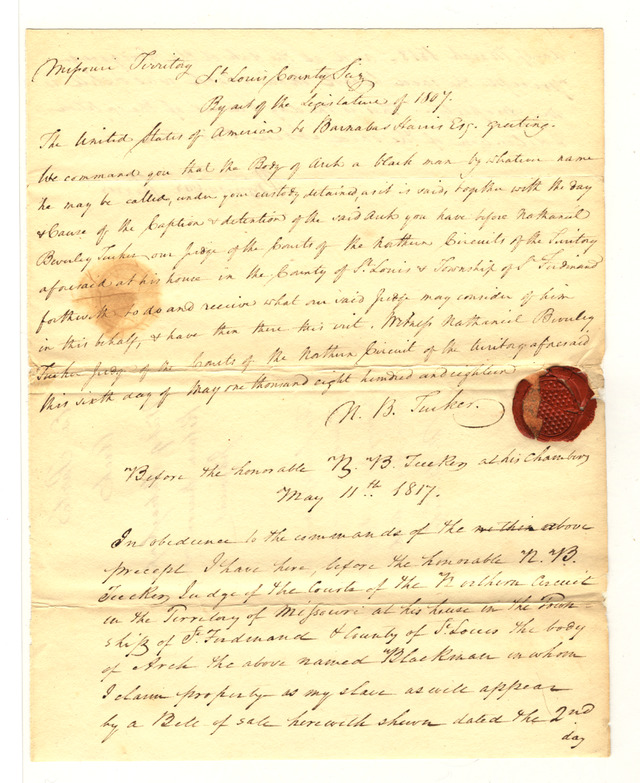 Missouri Territory
St Louis County Sct
By act of the Legislature of 1807.
The United States of America to Barnabas Harris Esq. greeting.
We command you that the Body of Arch a black man by whatever name
he may be called, under your custody detained, as it is said, together with the day
& Cause of the Caption & detention of the said Arch you have before Nathaniel
Beverley Tucker our Judge of the Courts of the Northern Circuits of the Territory
aforesaid at his house in the County of St. Louis & Township of St Ferdinand
forthwith to do and receive what our said Judge may consider of him
in this behalf, & have then there this writ. Witness Nathaniel Beverley
Tucker Judge of the Courts of the Northern Circuit of the territory aforesaid
this sixth day of May one thousand eight hundred and eighteen
N. B. Tucker.
Before the honorable N. B. Tucker at his Chambers
May 11th 1817.
In obedience to the commands of the within above
precept I have here, before the honorable N. B.
Tucker Judge of the Courts of the Northern Circuit
in the Territory of Missouri at his house in the Town
ship of St Ferdinand & County of St Louis the body
of Arch the above named Blackman in whom
I claim property as my slave as well appear
by a Bill of sale herewith shewn dated the 2nd
day